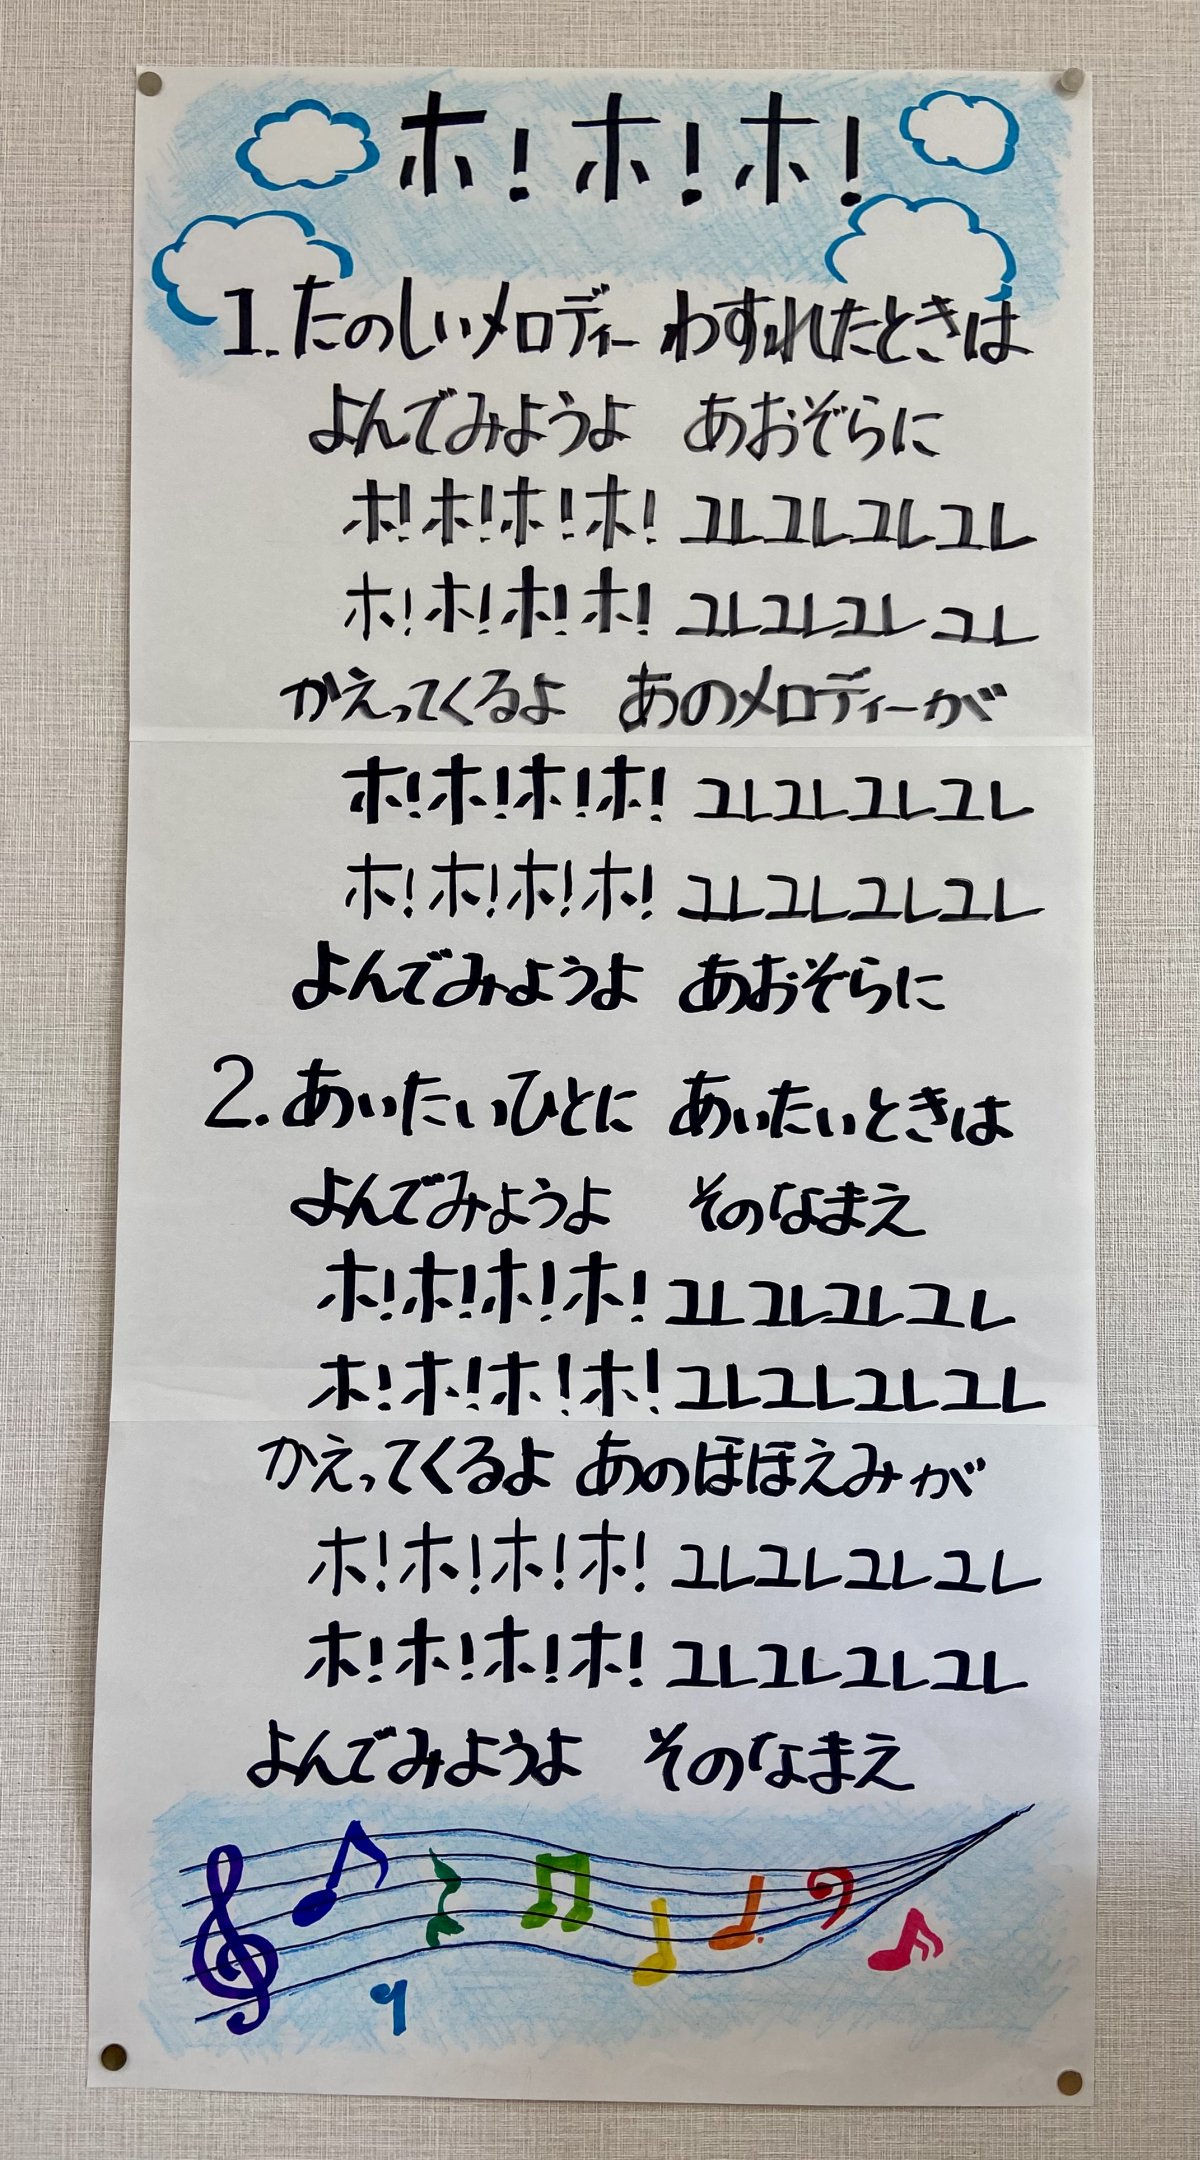 ホ！ホ！ホ！
1. たのしいメロディー わすれたときは
よんでみようよ あおぞらに
ホ！ホ！ホ！ホ！ ユレユレユレユレ
ホ！ホ！ホ！ホ！ ユレユレユレユレ
かえってくるよ あのメロディーが
ホ！ホ！ホ！ホ！ ユレユレユレユレ
ホ！ホ！ホ！ホ！ ユレユレユレユレ
よんでみようよ あおぞらに
2. あいたいひとに あいたいときは
よんでみようよ そのなまえ
ホ！ホ！ホ！ホ！ ユレユレユレユレ
ホ！ホ！ホ！ホ！ ユレユレユレユレ
かえってくるよ あのほほえみが
ホ！ホ！ホ！ホ！ ユレユレユレユレ
ホ！ホ！ホ！ホ！ ユレユレユレユレ
よんでみようよ そのなまえ